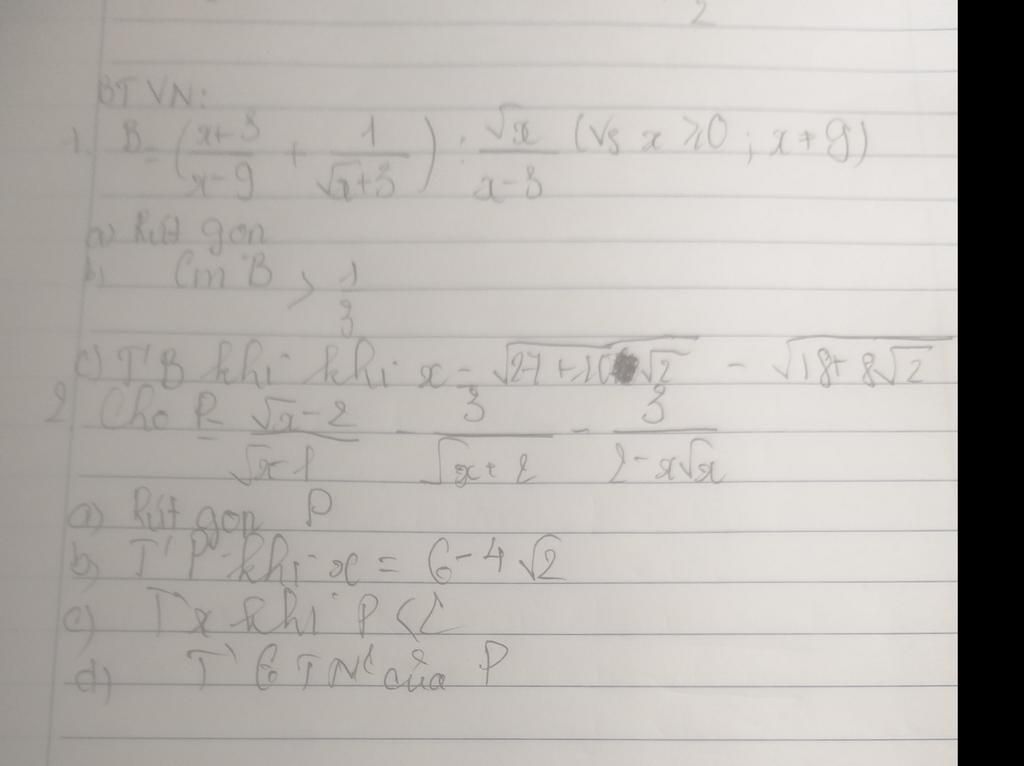 2
BTVN:
1. B = (x+3/x-9 + 1/√x+3) : √x/x-3 (Vs x ≥0 ; x ≠ 9)
a) Rút gọn
b) Cm B > 1/3
c) T' B khi khi x = √27+10√2 - √18+8√2
2. Cho P = √x-2/√x-1 - 3/√x+2 - 3/2-x√x
a) Rút gọn P
b) T' P khi x = 6-4√2
c) T' x khi P <
d) T' GTNN của P